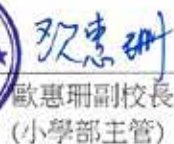 欧惠珊
歐惠珊副校長
(小學部主管)